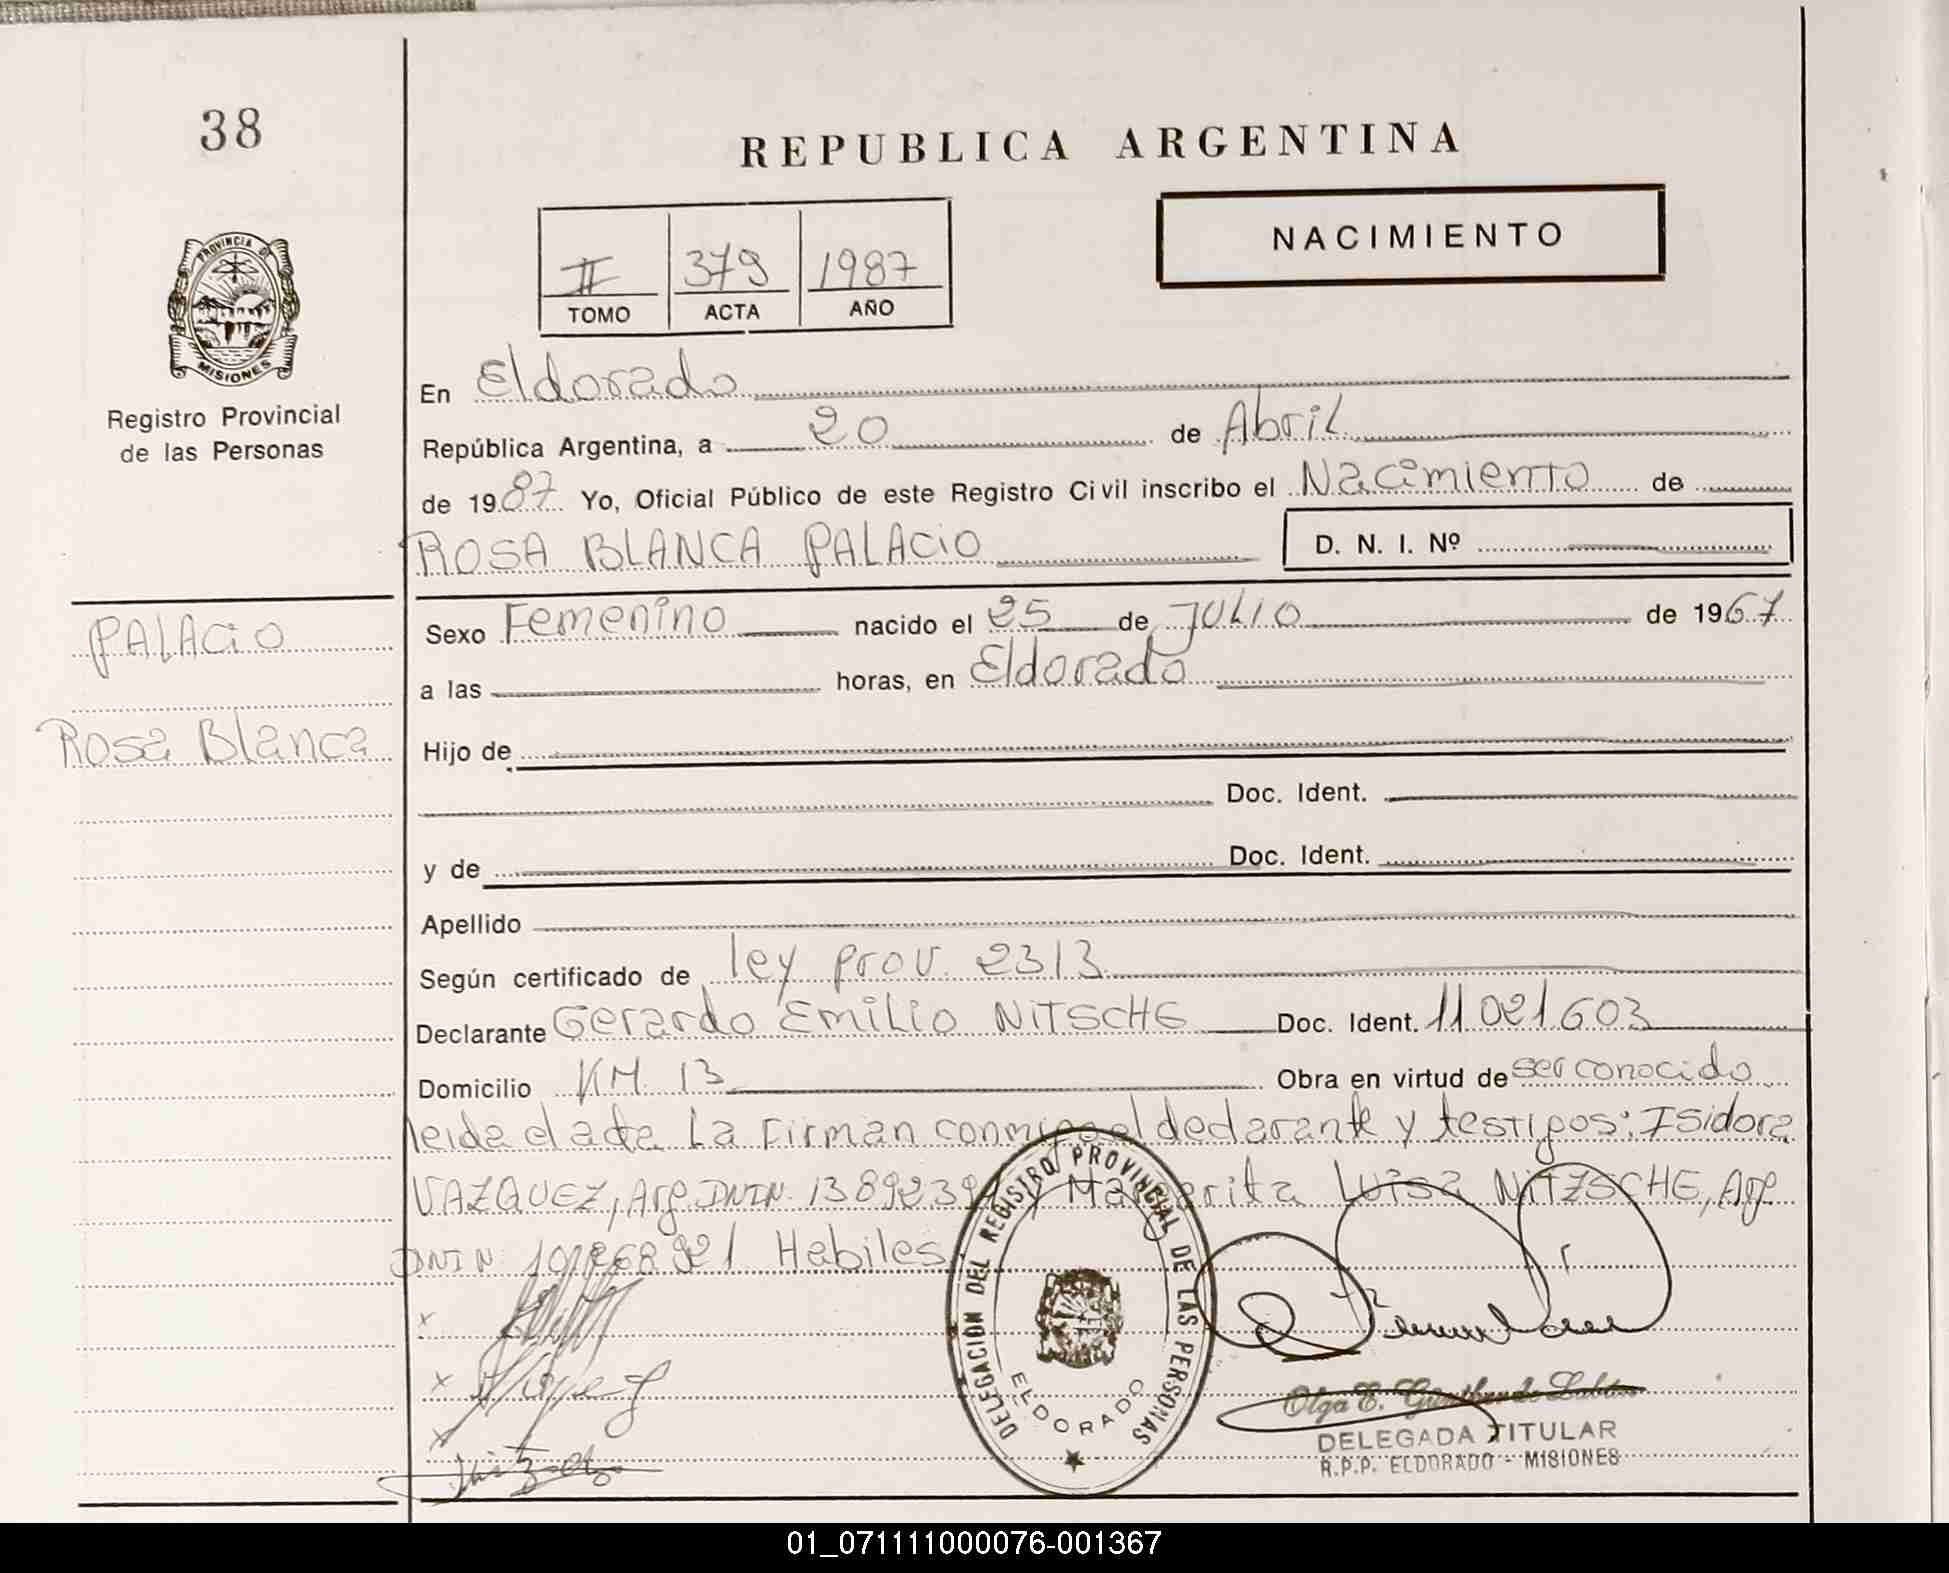 38
REPUBLICA ARGENTINA
NACIMIENTO
II 379 1987
TOMO ACTA AÑO
PROVINCIA DE
MISIONES
Registro Provincial
de las Personas
En Eldorado
República Argentina, a 20 de Abril
de 1987 Yo, Oficial Público de este Registro Civil inscribo el Nacimiento de
ROSA BLANCA PALACIO D. N. I. Nº
PALACIO
Rosa Blanca
Sexo Femenino nacido el 25 de JULIO de 1967
a las horas, en Eldorado
Hijo de
Doc. Ident.
y de Doc. Ident.
Apellido
Según certificado de ley prov. 2313
Declarante Gerardo Emilio NITSCHE Doc. Ident. 11021603
Domicilio KM. 13 Obra en virtud de ser conocido
leida el acta La Firman conmigo el declarante y testigos: Isidora
VAZQUEZ, Arg. DNIN. y Margarita Luisa NITZSCHE, Arg
DNI N Habiles
DELEGACION DEL REGISTRO PROVINCIAL DE LAS PERSONAS
ELDORADO
Olga E.
DELEGADA TITULAR
R.P.P. ELDORADO - MISIONES
01_071111000076-001367